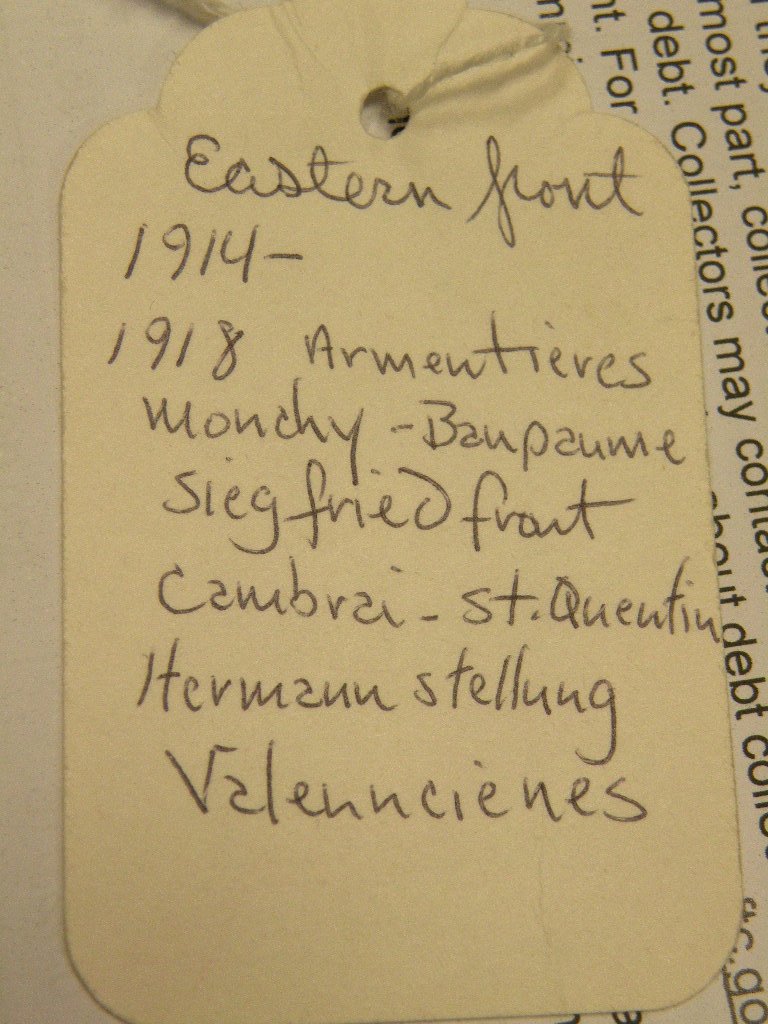 Eastern front
1914-
1918 Armentières
Monchy - Baupaume
Siegfried front
Cambrai - St. Quentin
Hermann stellung
Valenncienes
most part, collec
debt. Collectors may contac
nt. For
about debt collec